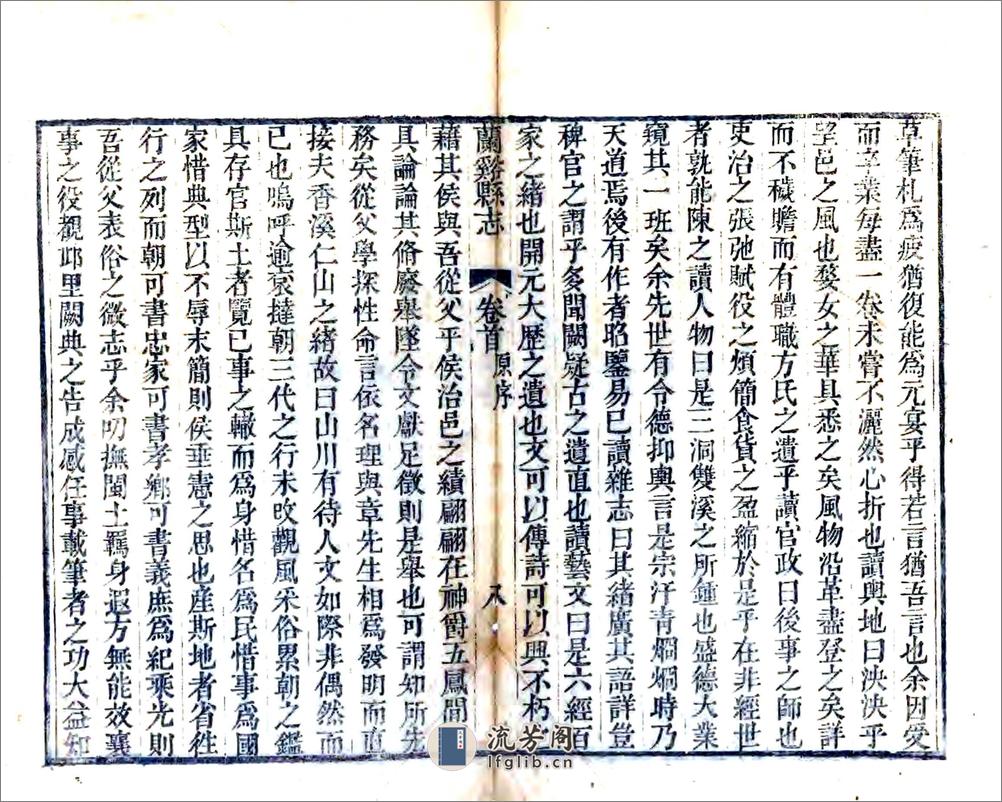 草筆札爲疲猶復能爲元宴乎得若言猶吾言也余因受
而卒業每盡一卷未嘗不灑然心折也讀輿地曰泱泱乎
望邑之風也婺女之華具悉之矣風物沿革盡登之矣詳
而不穢贍而有體職方氏之遺乎讀官政曰後事之師也
吏治之張弛賦役之煩簡食貨之盈縮於是乎在非經世
者孰能陳之讀人物曰是三洞雙溪之所鍾也盛德大業
窺其一班矣余先世有令德抑輿言是宗汗青燗燗時乃
天道焉後有作者昭鑒易已讀雜志曰其緒廣其語詳豈
稗官之謂乎多聞闕疑古之遺直也讀藝文曰是六經百
家之緒也開元大歷之遺也文可以傳詩可以興不朽
蘭谿縣志
卷首 原序
八
藉其侯與吾從父乎侯治邑之績翩翩在神爵五鳳間
具論論其脩廢舉墜令文獻足徵則是舉也可謂知所先
務矣從父學探性命言依名理與章先生相爲發明而直
接夫香溪仁山之緒故曰山川有待人文如際非偶然而
已也嗚呼逾裘撻朝三代之行未改觀風采俗累朝之鑑
具存官斯土者覽已事之轍而爲身惜名爲民惜事爲國
家惜典型以不辱末簡則侯垂憲之思也産斯地者省徃
行之列而朝可書忠家可書孝鄉可書義庶爲紀乘光則
吾從父表俗之微志乎余叨撫閩土羈身遐方無能效襄
事之役觀邦里闕典之告成感任事載筆者之功大益知
流芳阁
lfglib.cn